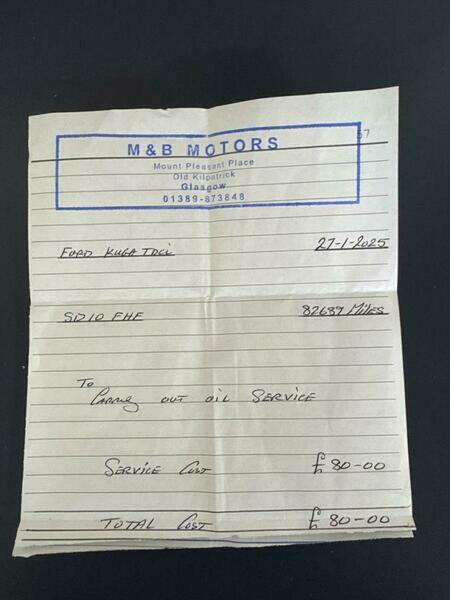 57
M & B MOTORS
Mount Pleasant Place
Old Kilpatrick
Glasgow
01389-873848
FORD KUGA TDCi 27-1-2025
SD10 FHF 82689 MILES
To
Carring OUT OIL SERVICE
SERVICE COST £80-00
TOTAL COST £80-00